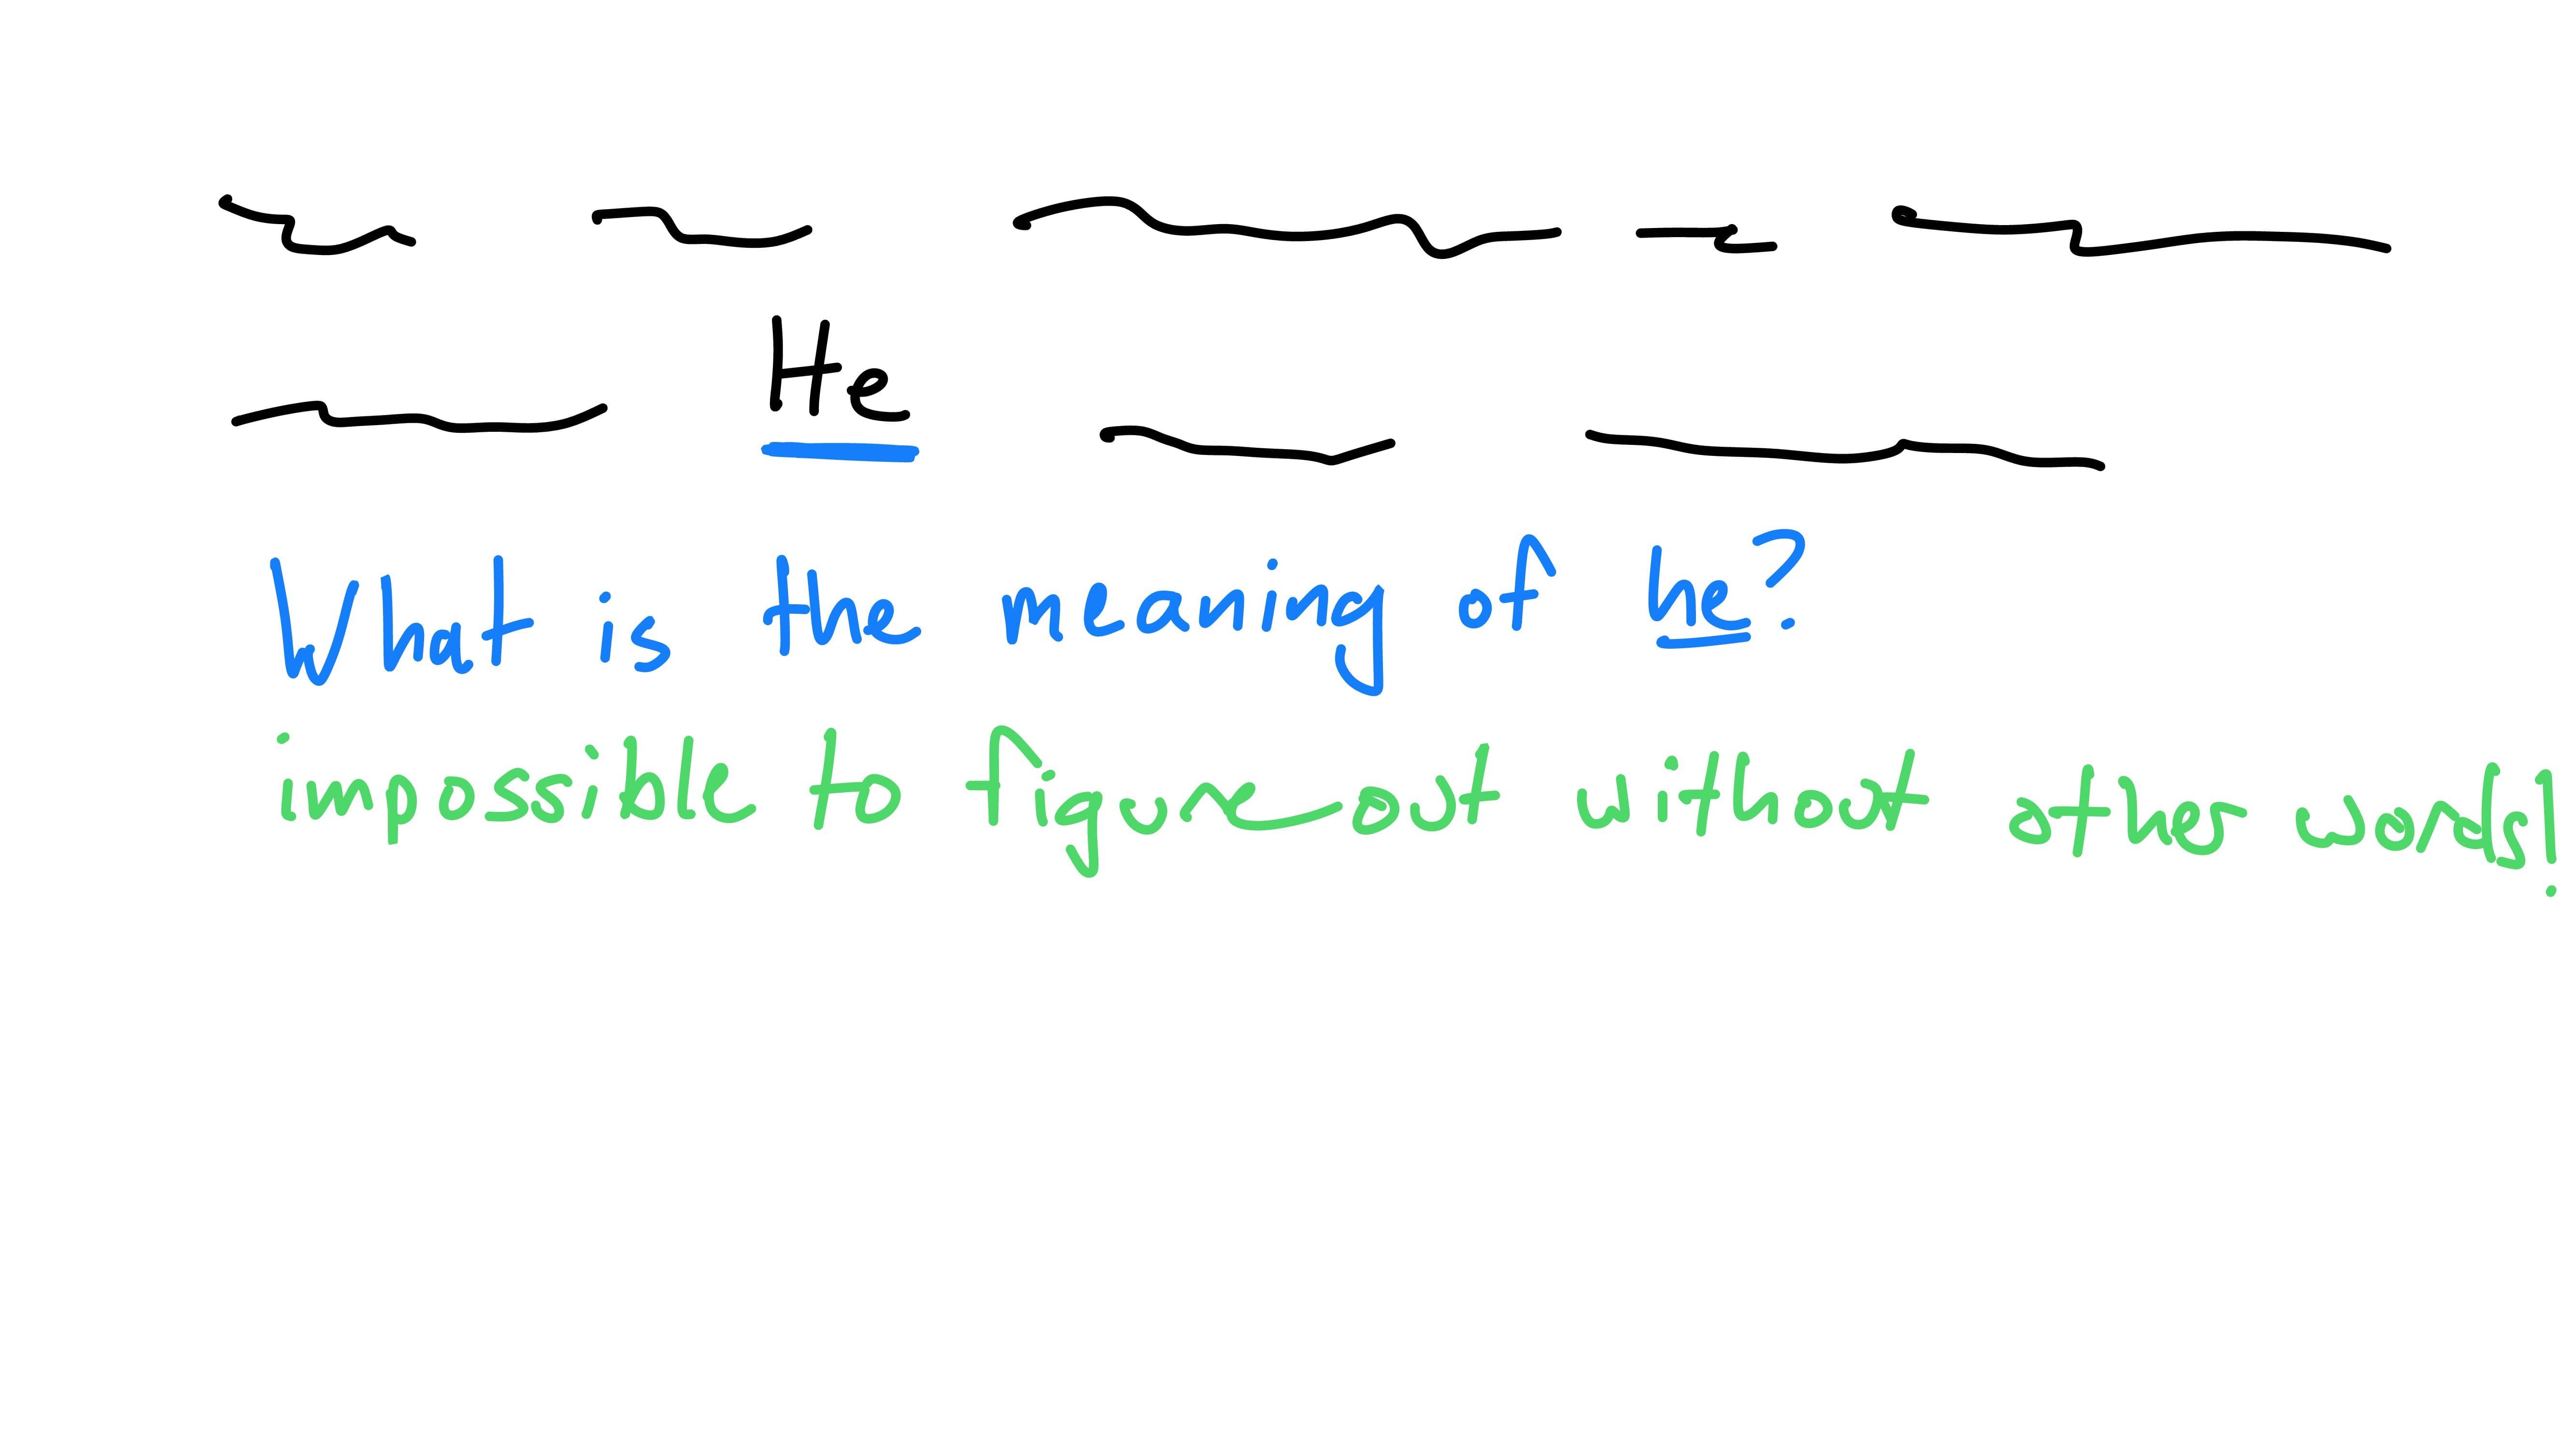 He
What is the meaning of he?
impossible to figure out without other words!